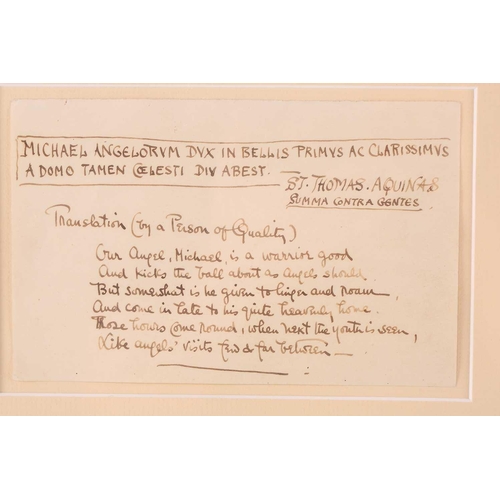 MICHAEL ANGELORVM DVX IN BELLIS PRIMVS AC CLARISSIMVS
A DOMO TAMEN CŒLESTI DIV ABEST.
ST. THOMAS. AQUINAS
SUMMA CONTRA GENTES.
Translation (by a Person of Quality)
Our Angel, Michael, is a warrior good
And kicks the ball about as angels should.
But somewhat is he given to linger and roam,
And come in late to his quite heavenly home.
Those hours come round, when next the youth is seen,
Like angels' visits few & far between —